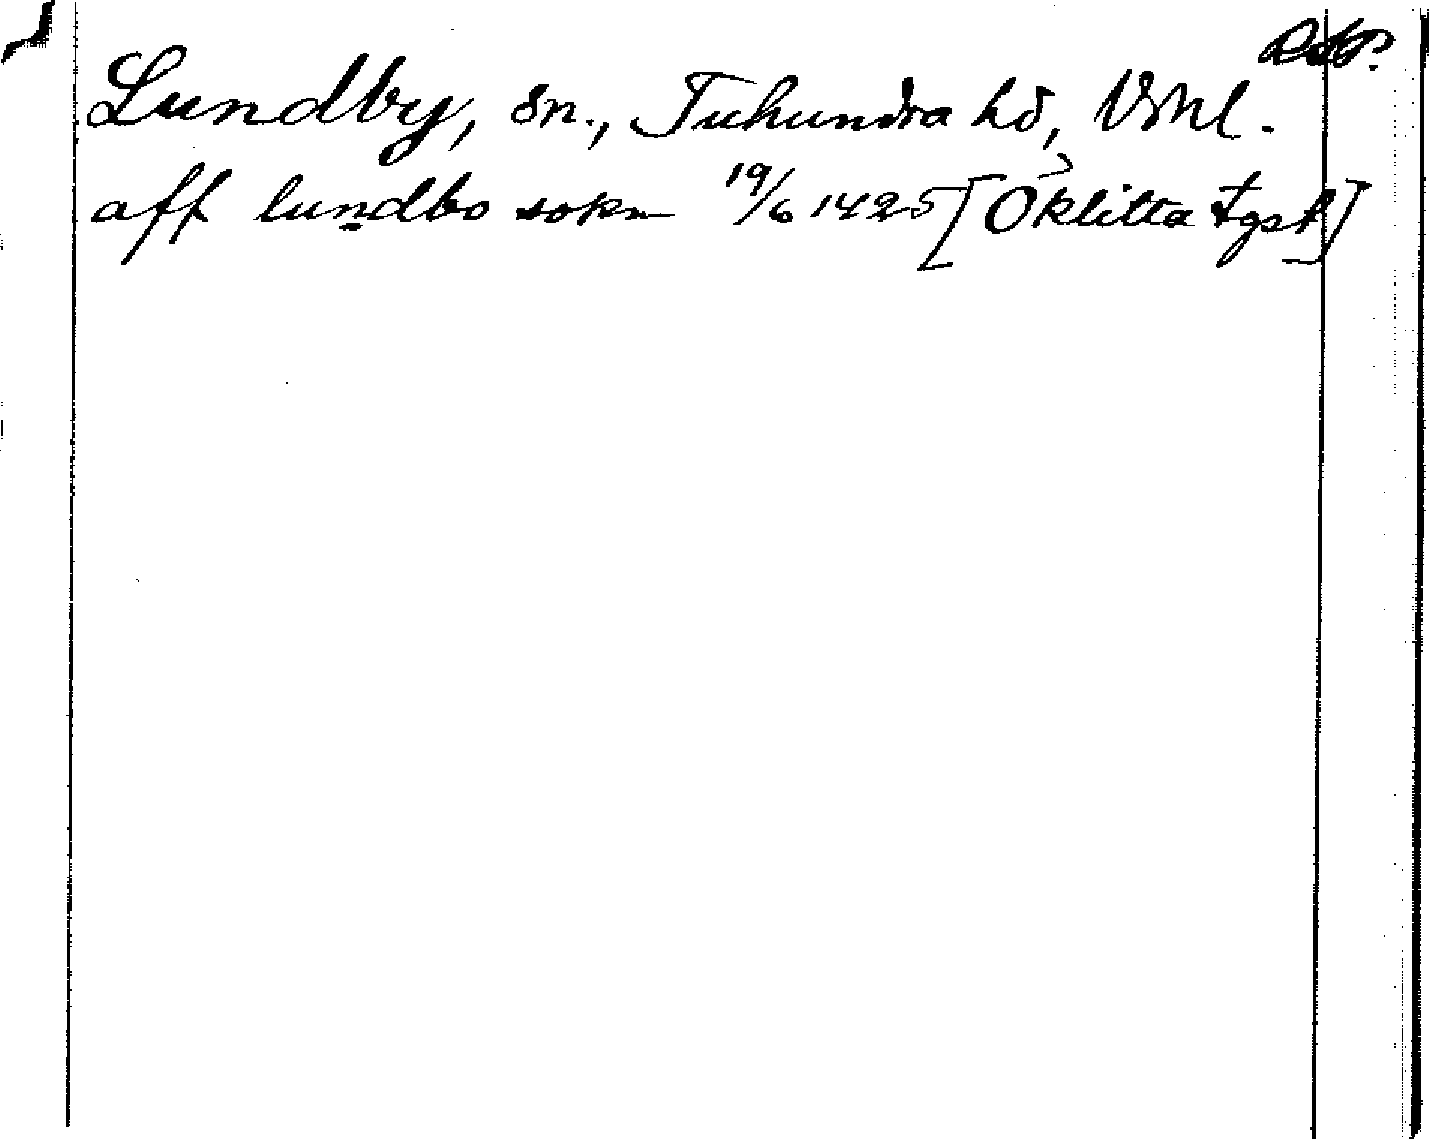 Lundby, sn., Tuhundra hd, Vstml.
aff lundbo sokn 19/6 1425 [Öklitta